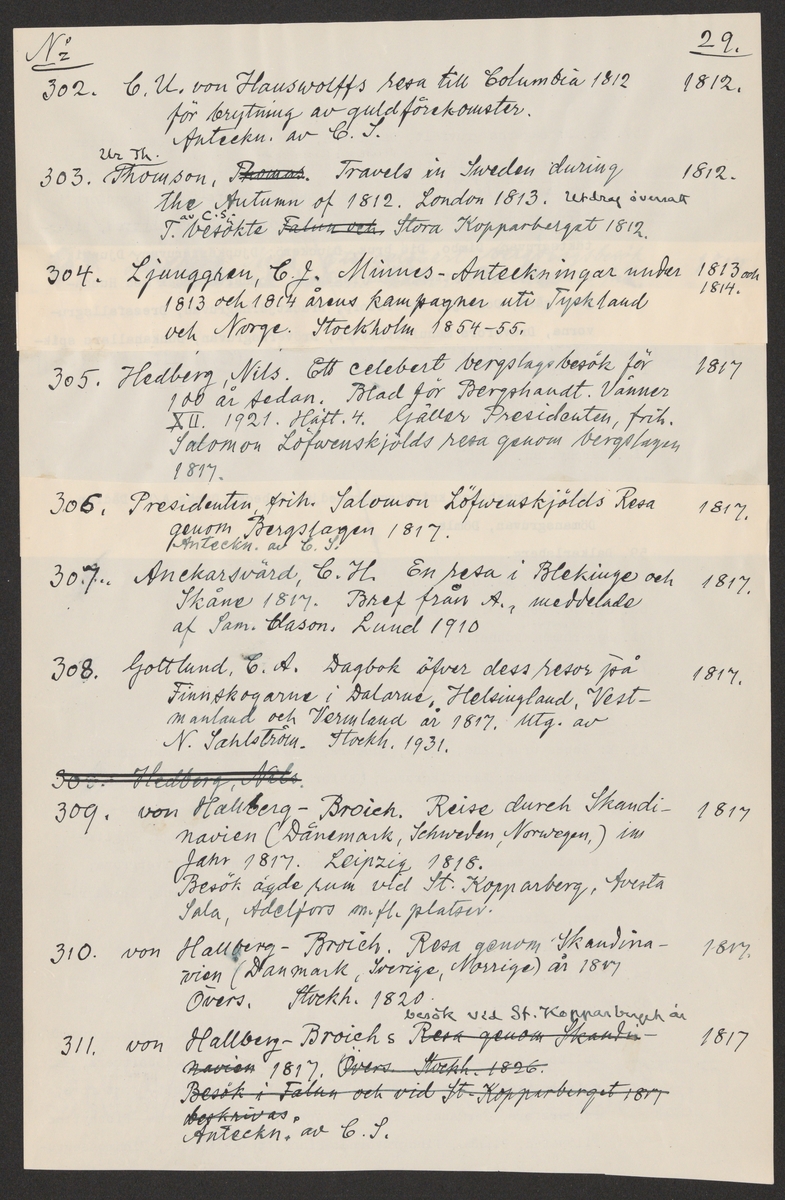 No 29.
302. C. U. von Hauswolffs resa till Columbia 1812 1812.
för brytning av guldförekomster.
Anteckn. av C. S.
Ur Th.
303. Thomson, Thomas. Travels in Sweden during 1812.
the Autumn of 1812. London 1813. Utdrag översatt
av C. S.
T. besökte Falun och Stora Kopparberget 1812.
304. Ljunggren, C. J. Minnes-Anteckningar under 1813 och
1813 och 1814 årens kampagner uti Tyskland 1814.
och Norge. Stockholm 1854-55.
305. Hedberg, Nils. Ett celebert bergslagsbesök för 1817
100 år sedan. Blad för Bergshandt. Vänner
XII. 1921. Häft. 4. Gäller Presidenten, frih.
Salomon Löfwenskjölds resa genom bergslagen
1817.
306. Presidenten, frih. Salomon Löfwenskjölds Resa 1817.
genom Bergslagen 1817.
Anteckn. av C. S.
307. Anckarsvärd, C. H. En resa i Blekinge och 1817.
Skåne 1817. Bref från A., meddelade
af Sam. Clason. Lund 1910
308. Gottlund, C. A. Dagbok öfver dess resor på 1817.
Finnskogarne i Dalarne, Helsingland, Vest-
manland och Vermland år 1817. Utg. av
N. Sahlström. Stockh. 1931.
Hedberg, Nils.
309. von Hallberg-Broich. Reise durch Skandi- 1817
navien (Dänemark, Schweden, Norwegen,) im
Jahr 1817. Leipzig 1818.
Besök ägde rum vid St. Kopparberg, Avesta
Sala, Adelfors m. fl. platser.
310. von Hallberg-Broich. Resa genom Skandina- 1817.
vien (Danmark, Sverige, Norrige) år 1817
Övers. Stockh. 1820.
besök vid St. Kopparberget år
311. von Hallberg-Broichs Resa genom Skandi- 1817
navien 1817. Övers. Stockh. 1826.
Besök i Falun och vid St. Kopparberget 1817
beskrivas.
Anteckn. av C. S.